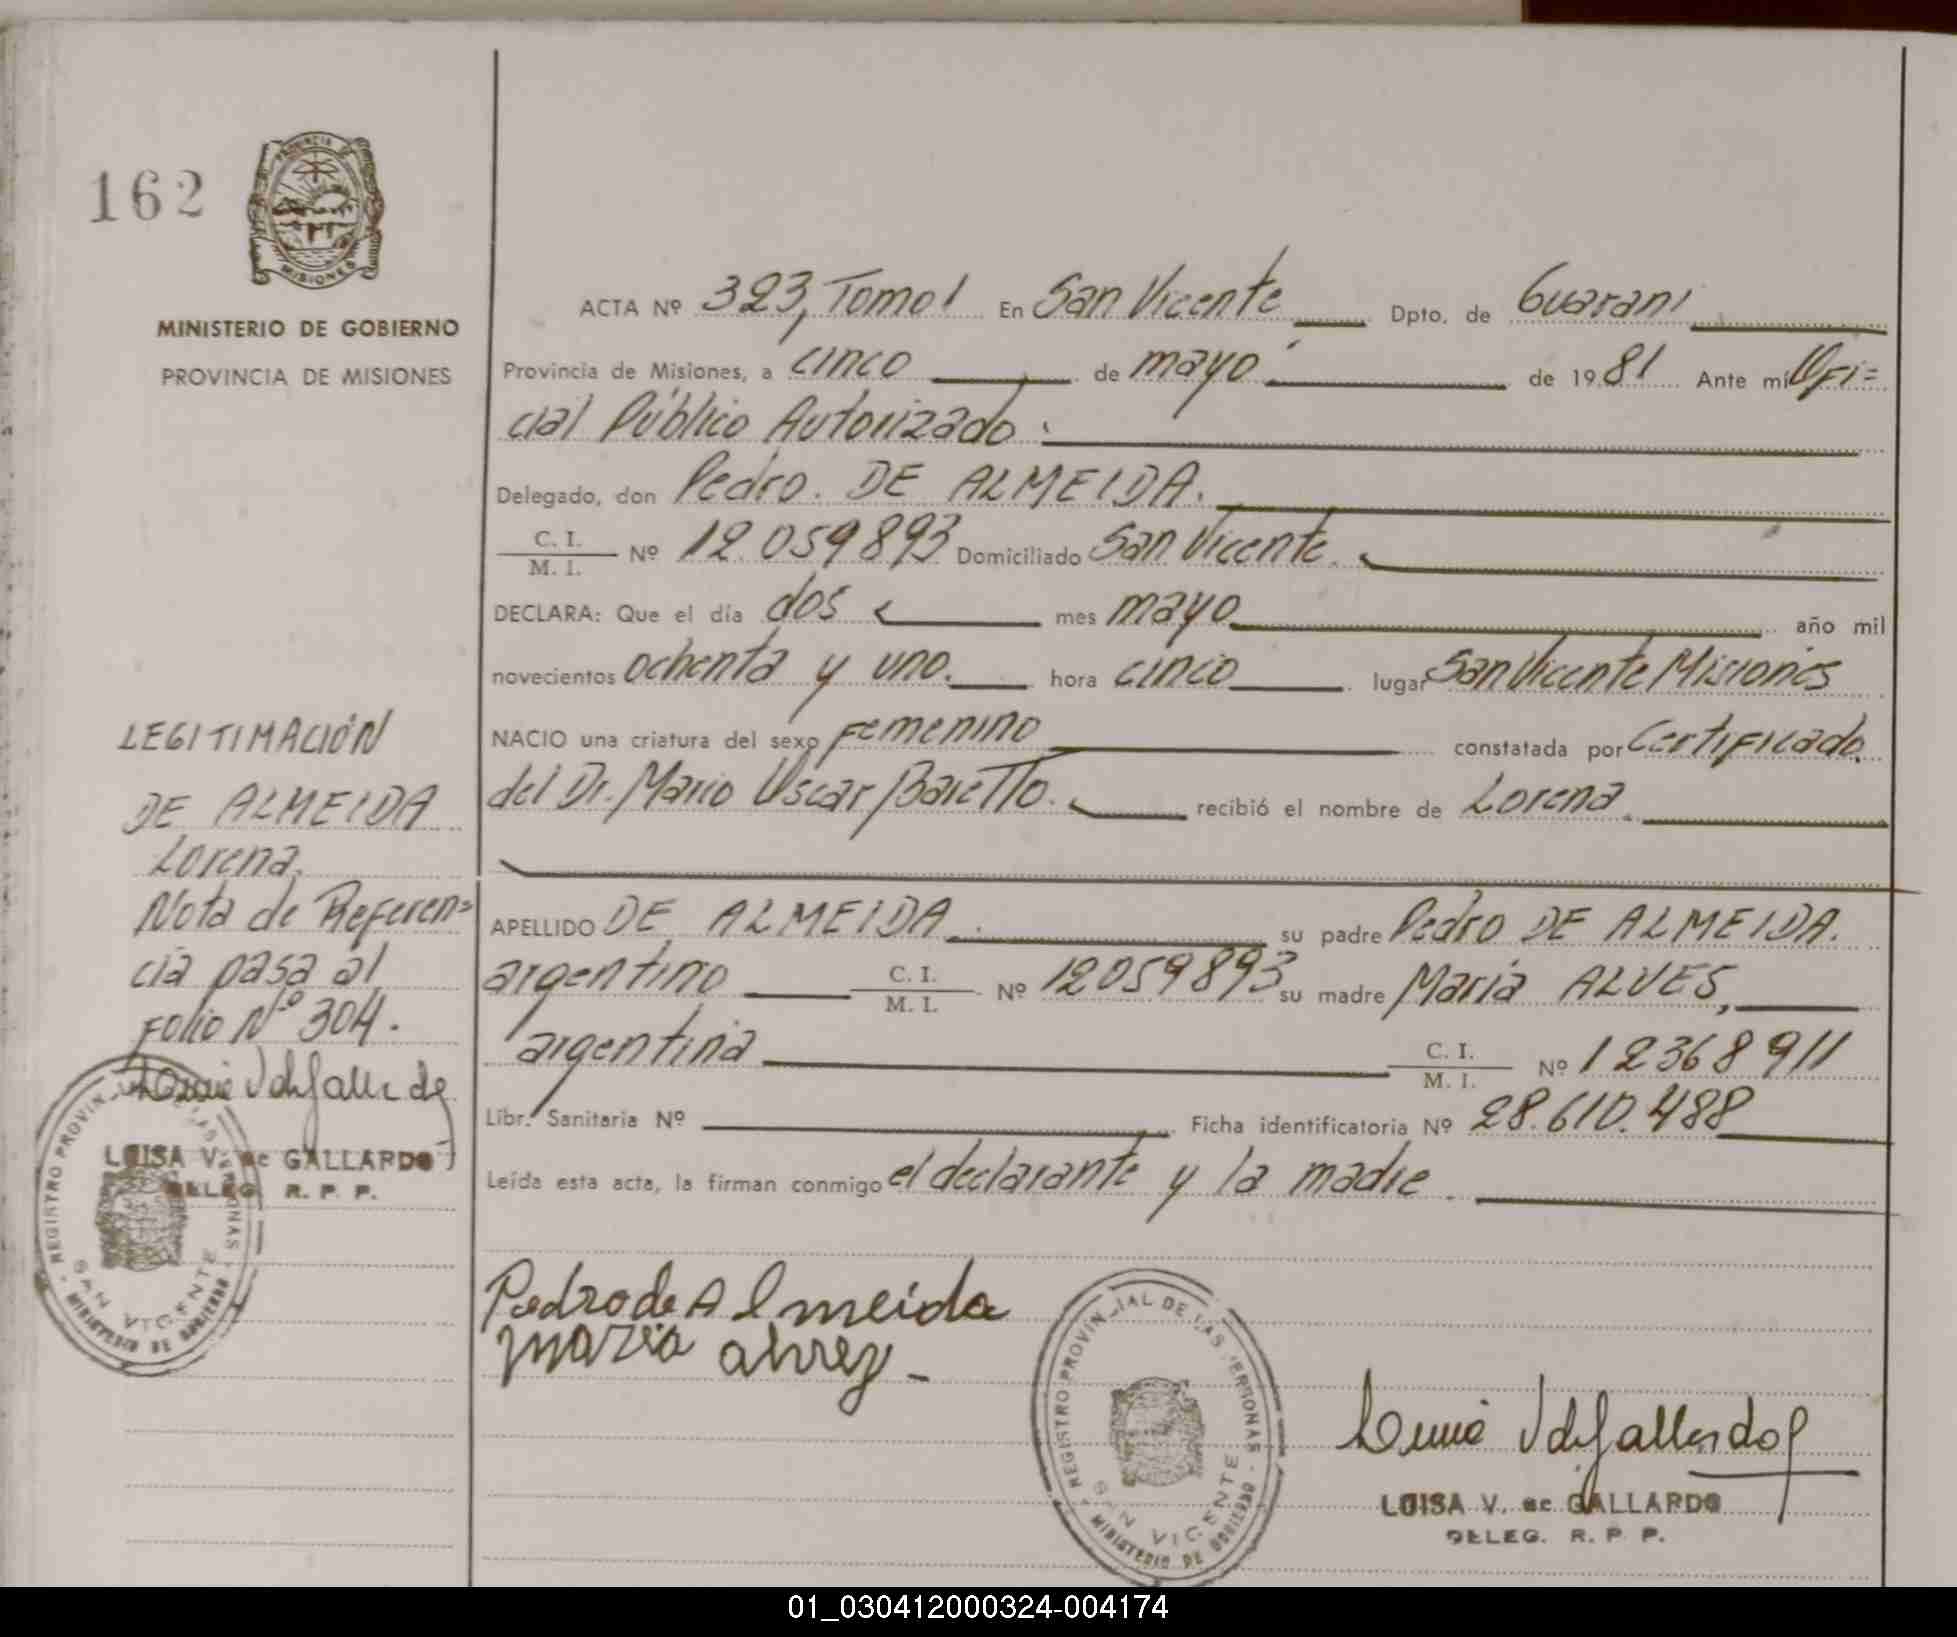 162
PROVINCIA DE
MISIONES
MINISTERIO DE GOBIERNO
PROVINCIA DE MISIONES
LEGITIMACIÓN
DE ALMEIDA
Lorena.
Nota de Referen=
cia pasa al
Folio Nº 304.
LUISA V. de GALLARDO
DELEG. R. P. P.
REGISTRO PROVINCIAL DE LAS PERSONAS
SAN VICENTE
MINISTERIO DE GOBIERNO
ACTA Nº 323, Tomo I En San Vicente Dpto. de Guaraní
Provincia de Misiones, a cinco de mayo de 1981 Ante mí Ofi=
cial Público Autorizado
Delegado, don Pedro. DE ALMEIDA.
C. I.
M. I. Nº 12.059893 Domiciliado San Vicente.
DECLARA: Que el día dos mes mayo año mil
novecientos ochenta y uno. hora cinco lugar San Vicente Misiones
NACIO una criatura del sexo Femenino constatada por Certificado
del Dr. Mario Oscar Baretto. recibió el nombre de Lorena
APELLIDO DE ALMEIDA su padre Pedro DE ALMEIDA.
argentino C. I.
M. I. Nº 12059893 su madre María ALVES,
argentina C. I.
M. I. Nº 12368911
Libr. Sanitaria Nº Ficha identificatoria Nº 28.610.488
Leída esta acta, la firman conmigo el declarante y la madre.
Pedro de Almeida
Maria alvez
REGISTRO PROVINCIAL DE LAS PERSONAS
SAN VICENTE
MINISTERIO DE GOBIERNO
LUISA V. de GALLARDO
DELEG. R. P. P.
01_030412000324-004174